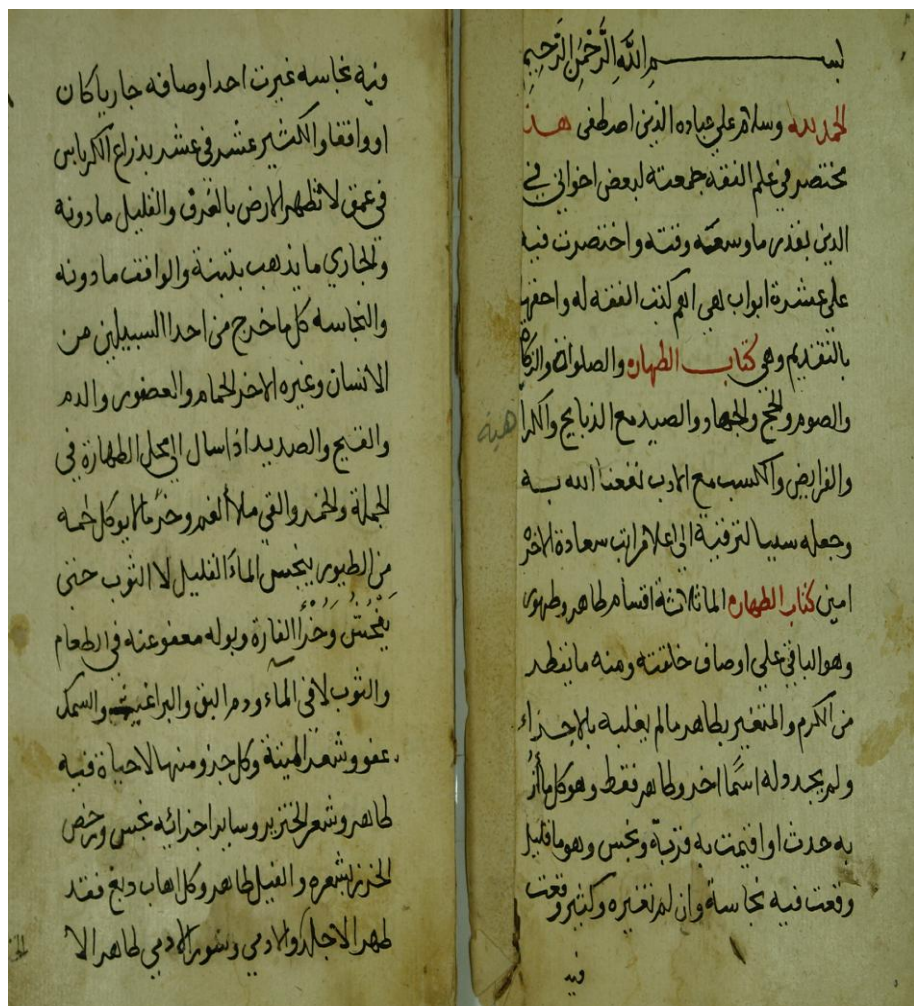 بسم الله الرحمن الرحيم
الحمد لله وسلام علي عباده الذين اصطفي هذا
مختصر في علم الفقه جمعته لبعض اخواني في
الدين بقدر ما وسعته وقته واختصرت فيه
علي عشرة ابواب هي اهم كتب الفقه له واحقها
بالتقديم وهي كتاب الطهاره والصلوات والزكاة
والصوم والحج والجهاد والصيد مع الذبايح والكرا
هية
والفرايض والكسب مع الادب نفعنا الله به
وجعله سببا لترقية الي اعلا مراتب سعادة الاخره
امين كتاب الطهاره الما ثلاثة اقسام طاهر وطهور
وهو الباقي علي اوصاف خلقته ومنه ما يقطر
من الكرم والمتغير بطاهر ما لم يغلبه بالاجزاء
ولم يجدد له اسما اخر وطاهر فقط وهو كل ما أزيل
به حدث او اقيمت به قربة ونجس وهو ما قليل
وقعت فيه نجاسة وان لم تغيره وكثير وقعت
فيه
فيه نجاسه غيرت احد اوصافه جاريا كان
او واقفا والكثير عشر في عشر بذراع الكرباس
في عمق لا تظهر الارض بالغرف والقليل ما دونه
والجاري ما يذهب بتبنة والواقف ما دونه
والنجاسه كل ما خرج من احد السبيلين من
الانسان وغيره الا خر الحمام والعصفور والدم
والقيح والصديد اذا سال الي محل الطهارة في
الجملة والخمر والقي ملأ الفم وخرء ما لا يوكل لحمه
من الطيور ينجس الماء القليل لا الثوب حتي
يفحش وخرأ الفارة وبوله معفو عنه في الطعام
والثوب لا في الماء ودم البق والبراغيث والسمك
عفو وشعر الميتة وكل جزو منها لا حياة فيه
طاهر وشعر الخنزير وساير اجزائه نجس ورخص
الخرز بشعره والفيل طاهر وكل اهاب دبغ فقد
طهر الا جلد الادمي وسور الادمي طاهر الا